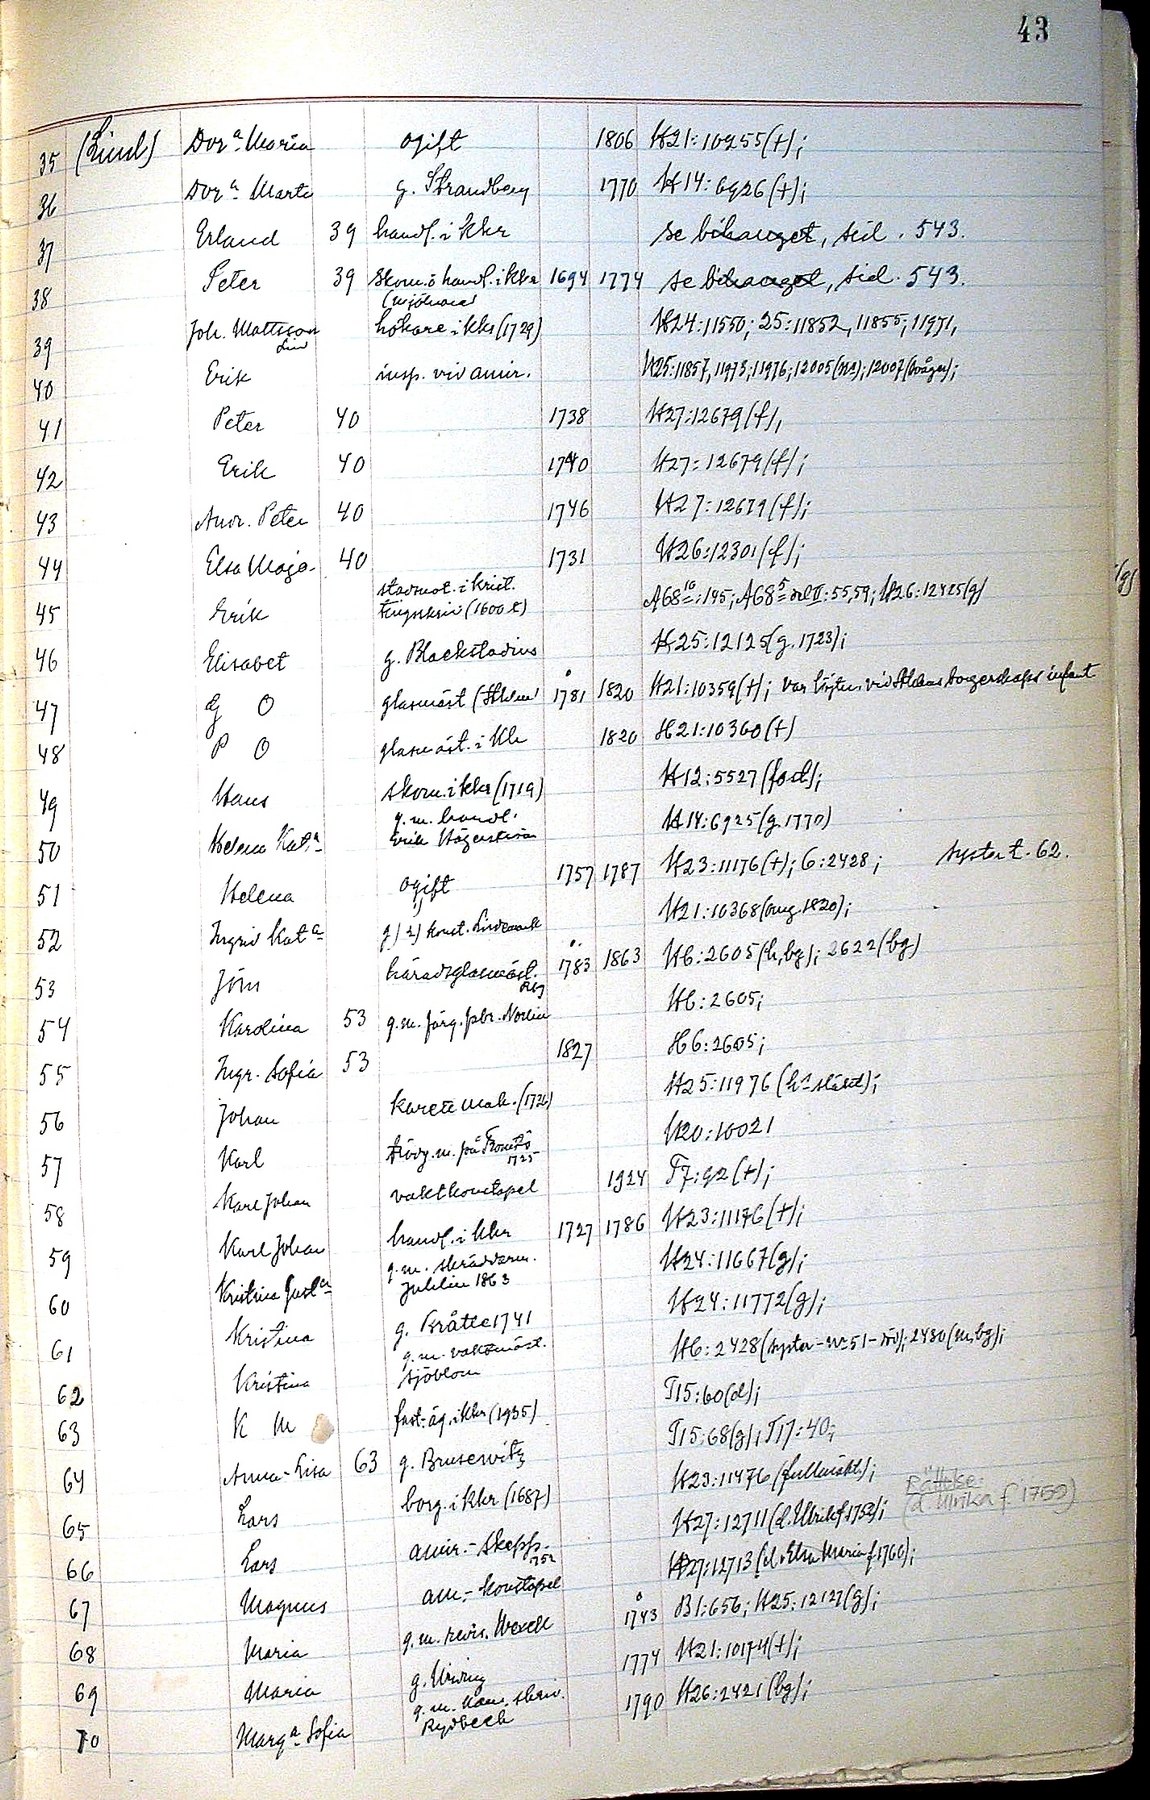 43
35 (Lind) Dora Maria ogift 1806 H21:10255(†);
36 Dora Marta g. Strandberg 1770 H14:6926(†);
37 Erland 39 handl. i Kkr se bihanget, sid. 543.
38 Peter 39 skom. o handl. i Kkr 1694 1774 se bihanget, sid. 543.
39 Joh. Mattsson Lind hökare i Kkr (1729) H24:11550; 25:11852, 11855, 11971,
40 Erik insp. vid amir. H25:11857, 11975, 11976; 12005 12007(svåger);
41 Peter 40 1738 H27:12679(f),
42 Erik 40 1740 H27:12679(f);
43 Andr. Peter 40 1746 H27:12679(f);
44 Elsa Maja 40 1731 H26:12301(f);
stadsnot. i Krist.
45 Erik tingsskriv (1600 t) A68:195; A68 del II:55,59; H26:12425(g)
46 Elisabet g. Blackstadius H25:12125(g. 1723);
47 G O glasmäst (Sthlm) 1781 1820 H21:10359(†); var löjtn. vid Sthlms borgerskaps infant
48 P O glasmäst. i Kkr 1820 H21:10360(†)
49 Hans skom. i Kkr (1719) H12:5527(fast);
50 Helena Kata g.m. handl. Erik Hägerström H14:6925(g. 1770)
51 Helena ogift 1757 1787 H23:11176(†); 6:2428; syster t. 62.
52 Ingrid Kata g) 2) konst. Lindemark H21:10368(omg. 1820);
53 Jöns häradsglasmäst. 1783 1863 H6:2605(h, bg); 2622(bg)
54 Karolina 53 g.m. färg. pbr. Norlin H6:2605;
55 Ingr. Sofia 53 1827 H6:2605;
56 Johan karetmak. (1726) H25:11976 (hs släkt);
57 Karl skog. m. på Tromtö 1725 H20:10021
58 Karl Johan vaktkonstapel 1924 T7:92(†);
59 Karl Johan handl. i Kkr 1727 1786 H23:11176(†);
60 Kristina Gusta g.m. skräddarm. Juhlin 1863 H24:11667(g);
61 Kristina g. Bråtte 1741 H24:11772(g);
62 Kristina g.m. vaktmäst. Sjöblom H6:2428(syster - nr 51 - död); 2430(m, bg);
63 K M fast.äg. i Kkr (1935) T15:60(d);
64 Anna-Lisa 63 g. Brusewitz T15:68(g); T17:40;
65 Lars borg. i Kkr (1687) H23:11476(fullmäkt);
66 Lars amir.-skepp. 1752 H27:12711(d. Ulrik f. 1759); Rättelse: (d. Ulrika f. 1759)
67 Magnus am.-konstapel H27:12713(d. Elsa Maria f. 1760);
68 Maria g.m. revis. Wexell 1743 B1:656; H25:12127(g);
69 Maria g. Wiving 1774 H21:10174(†);
70 Marga Sofia g.m. kam. skriv. Rydbeck 1790 H26:2421(bg);